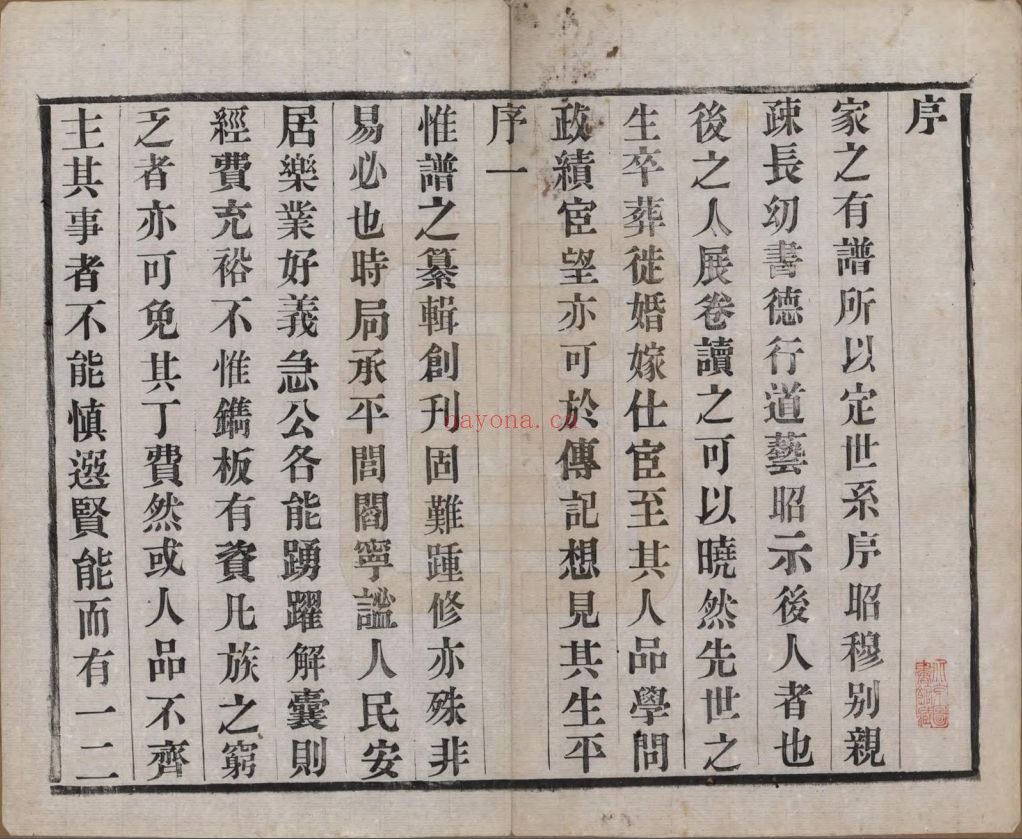 序
家之有譜所以定世系序昭穆别親
疎長幼書德行道藝昭示後人者也
後之人展卷讀之可以曉然先世之
生卒葬徙婚嫁仕宦至其人品學問
政績宦望亦可於傳記想見其生平
序一
惟譜之纂輯創刊固難踵修亦殊非
易必也時局承平閭閻寧謐人民安
居樂業好義急公各能踴躍解囊則
經費充裕不惟鐫板有資凡族之窮
乏者亦可免其丁費然或人品不齊
主其事者不能慎選賢能而有一二
nayona.cn